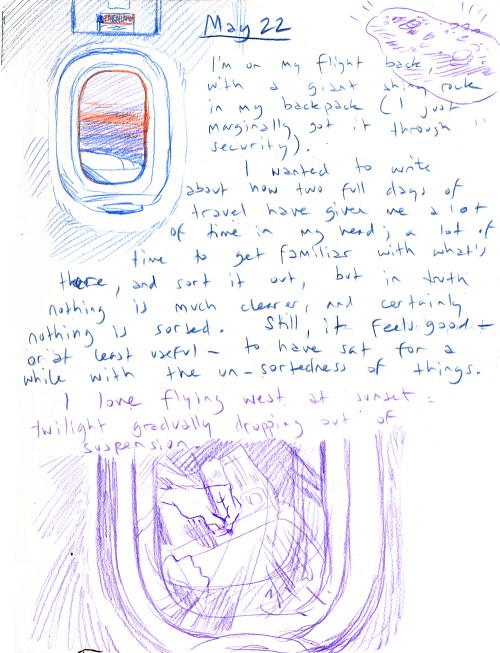 May 22
I'm on my flight back,
with a giant shiny rock
in my backpack (I just
marginally got it through
security).
I wanted to write
about how two full days of
travel have given me a lot
of time in my head; a lot of
time to get familiar with what's
there, and sort it out, but in truth
nothing is much clearer, and certainly
nothing is sorted. Still, it feels good -
or at least useful - to have sat for a
while with the un-sortedness of things.
I love flying west at sunset:
twilight gradually dropping out of
suspension.